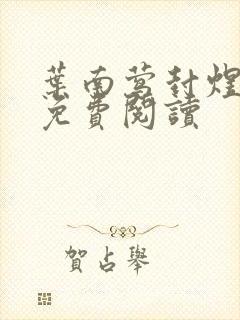 葉南莺封煌
免費閱讀
賀占舉